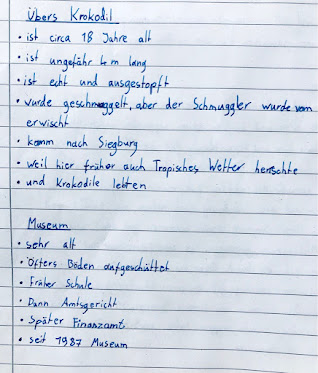 Übers Krokodil
• ist circa 18 Jahre alt
• ist ungefähr 4m lang
• ist echt und ausgestopft
• wurde geschmuggelt, aber der Schmuggler wurde vom
erwischt
• kamm nach Siegburg
• weil hier früher auch Tropisches Wetter herrschte
• und Krokodile lebten
Museum
• sehr alt
• Öfters Böden aufgeschüttet
• Früher Schule
• Dann Amtsgericht
• Später Finanzamt
• seit 1987 Museum